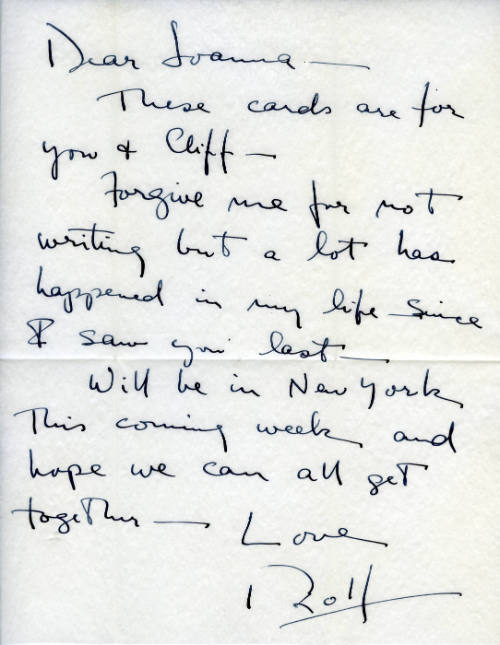 Dear Joanna —
These cards are for
you & Cliff —
Forgive me for not
writing but a lot has
happened in my life since
I saw you last —
Will be in New York
this coming week and
hope we can all get
together — Love
Rolf